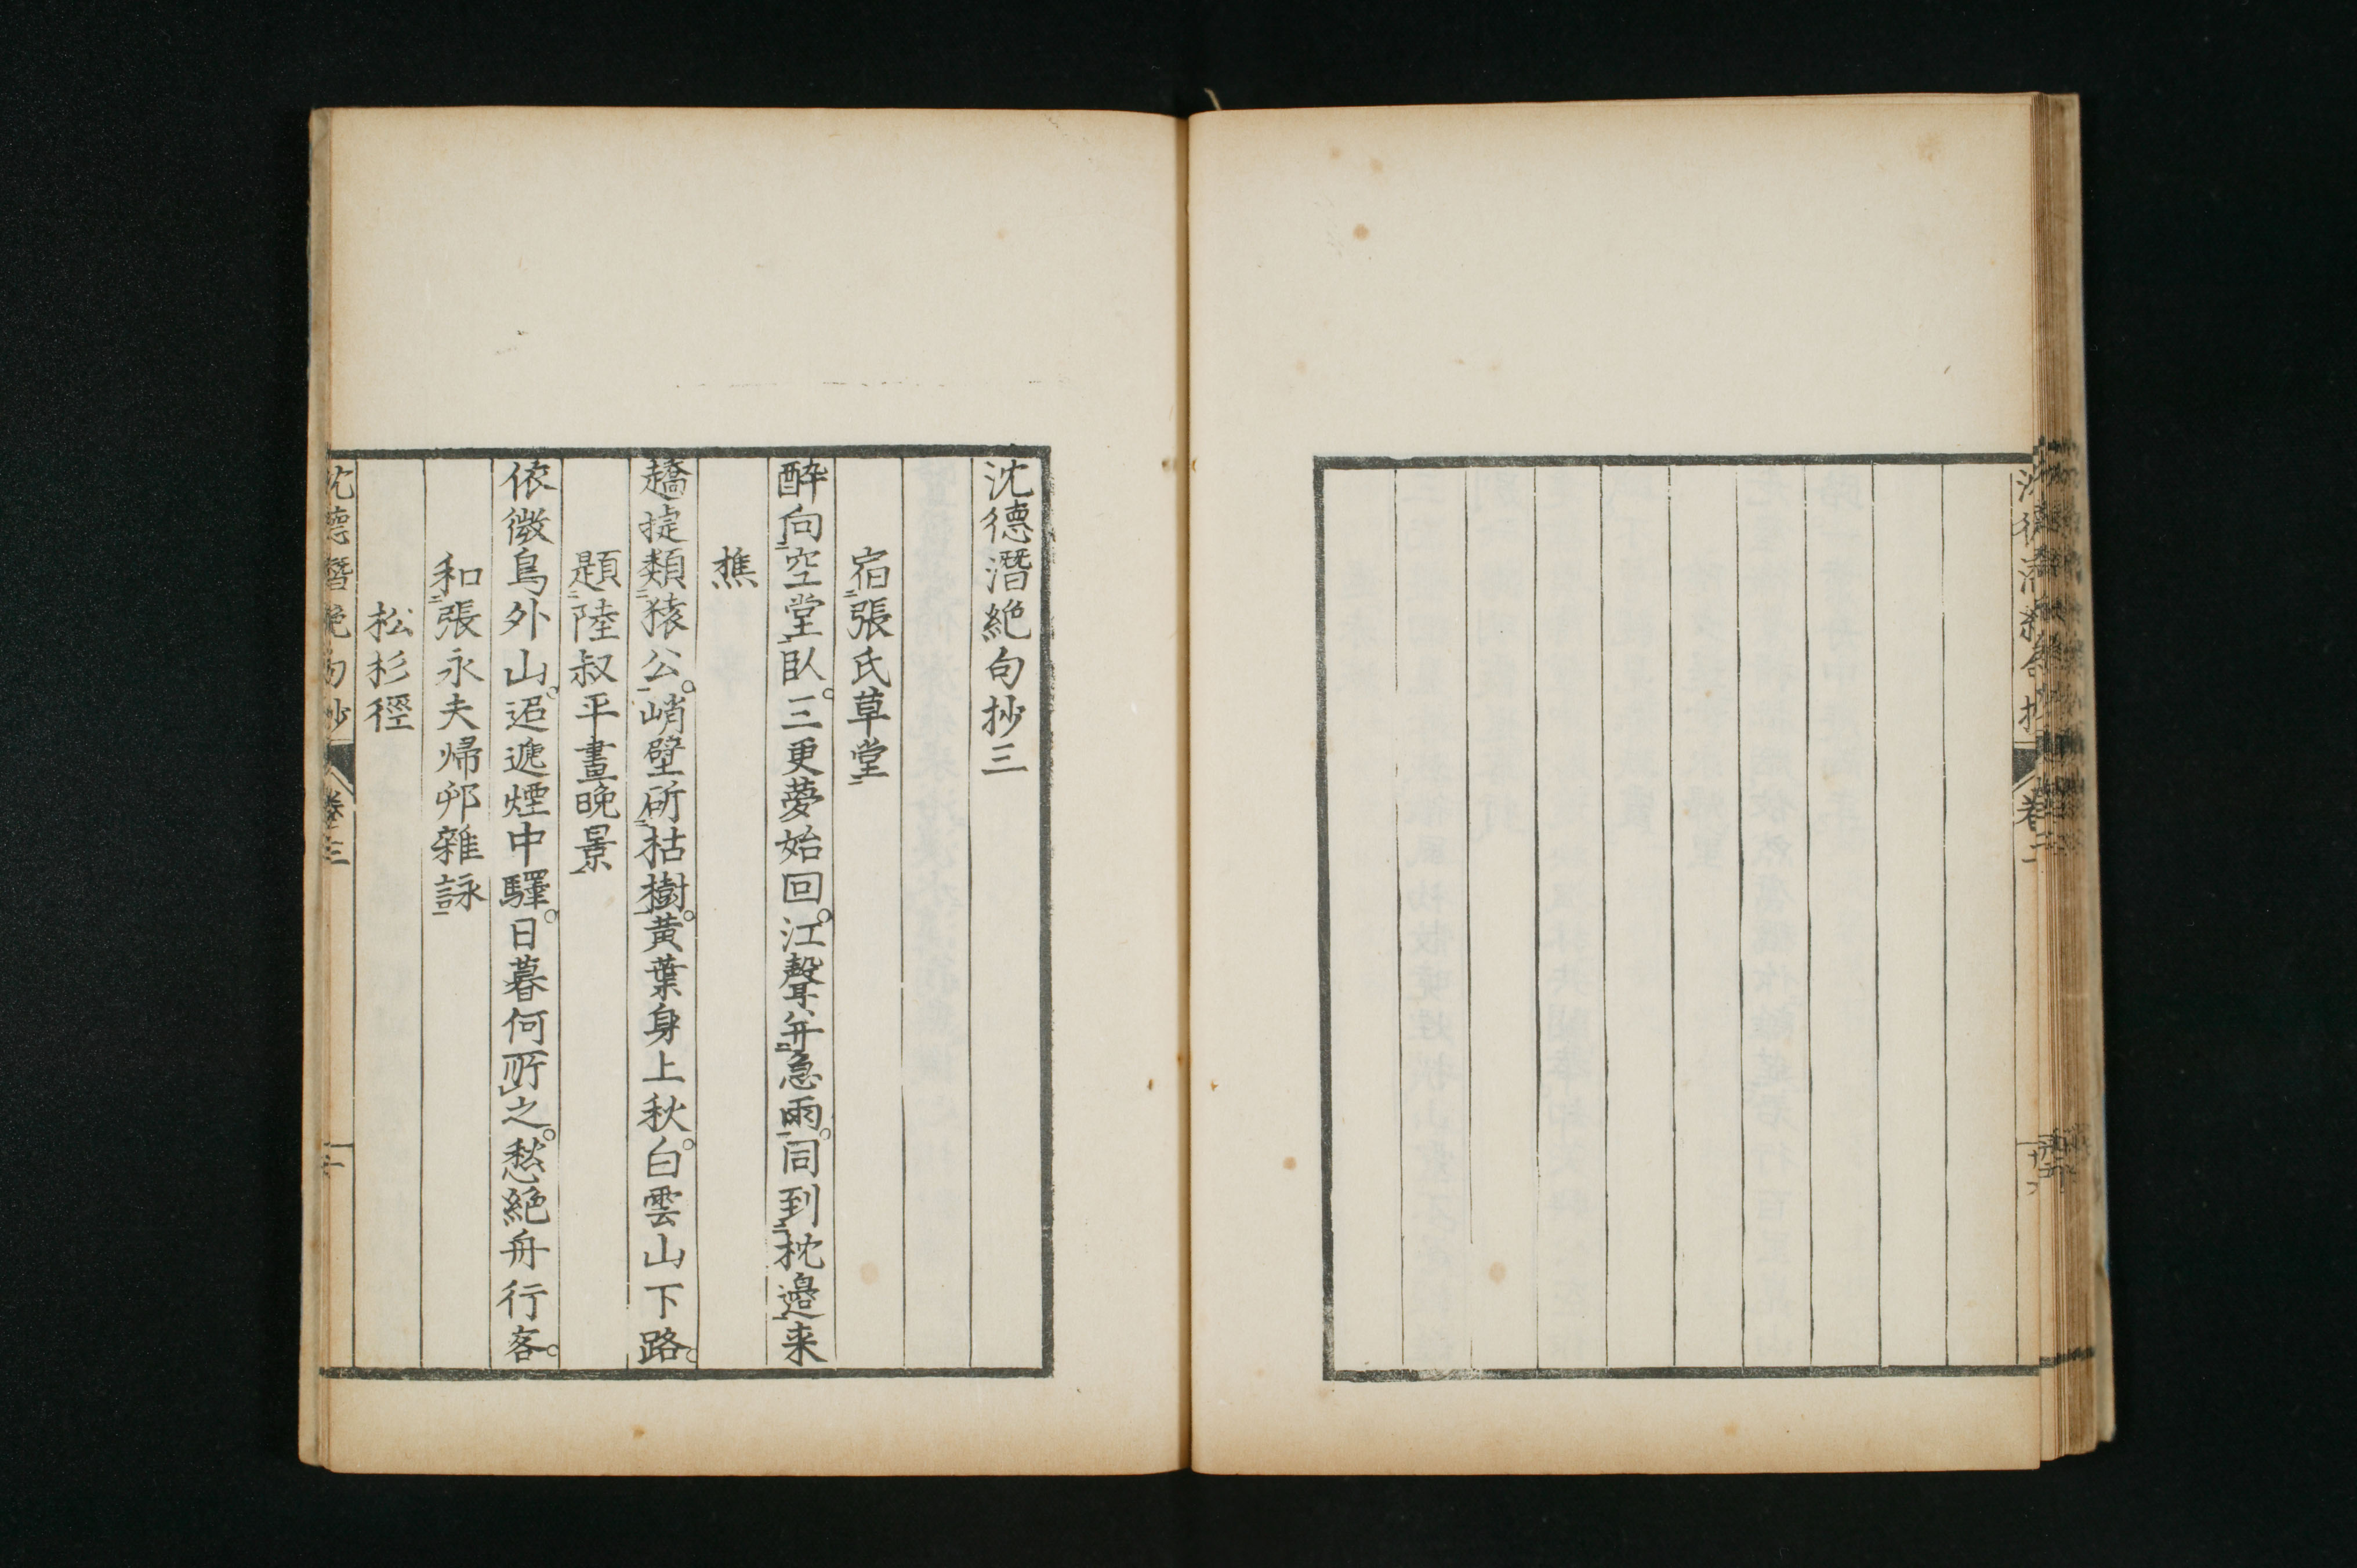 沈德潛絶句抄三
宿張氏草堂
醉向空堂臥。三更夢始回。江聲幷急雨。同到枕邊来
樵
趫捷類猿公。峭壁斫枯樹。黃葉身上秋。白雲山下路。
題陸叔平畫晚景
依微鳥外山。迢遞煙中驛。日暮何所之。愁絶舟行客。
和張永夫帰邨雜詠
松杉徑
沈德潛絶句抄 卷三